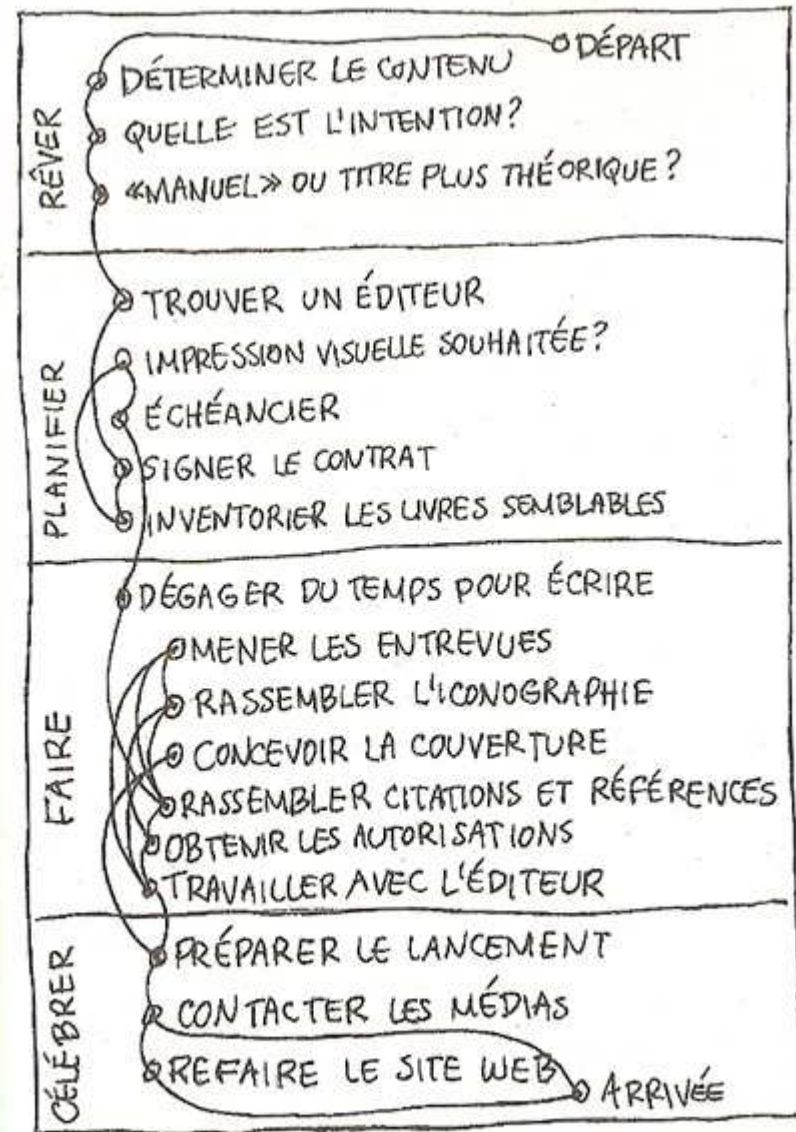 DÉPART
RÊVER
DÉTERMINER LE CONTENU
QUELLE EST L'INTENTION?
«MANUEL» OU TITRE PLUS THÉORIQUE?
PLANIFIER
TROUVER UN ÉDITEUR
IMPRESSION VISUELLE SOUHAITÉE?
ÉCHÉANCIER
SIGNER LE CONTRAT
INVENTORIER LES LIVRES SEMBLABLES
FAIRE
DÉGAGER DU TEMPS POUR ÉCRIRE
MENER LES ENTREVUES
RASSEMBLER L'ICONOGRAPHIE
CONCEVOIR LA COUVERTURE
RASSEMBLER CITATIONS ET RÉFÉRENCES
OBTENIR LES AUTORISATIONS
TRAVAILLER AVEC L'ÉDITEUR
CÉLÉBRER
PRÉPARER LE LANCEMENT
CONTACTER LES MÉDIAS
REFAIRE LE SITE WEB
ARRIVÉE